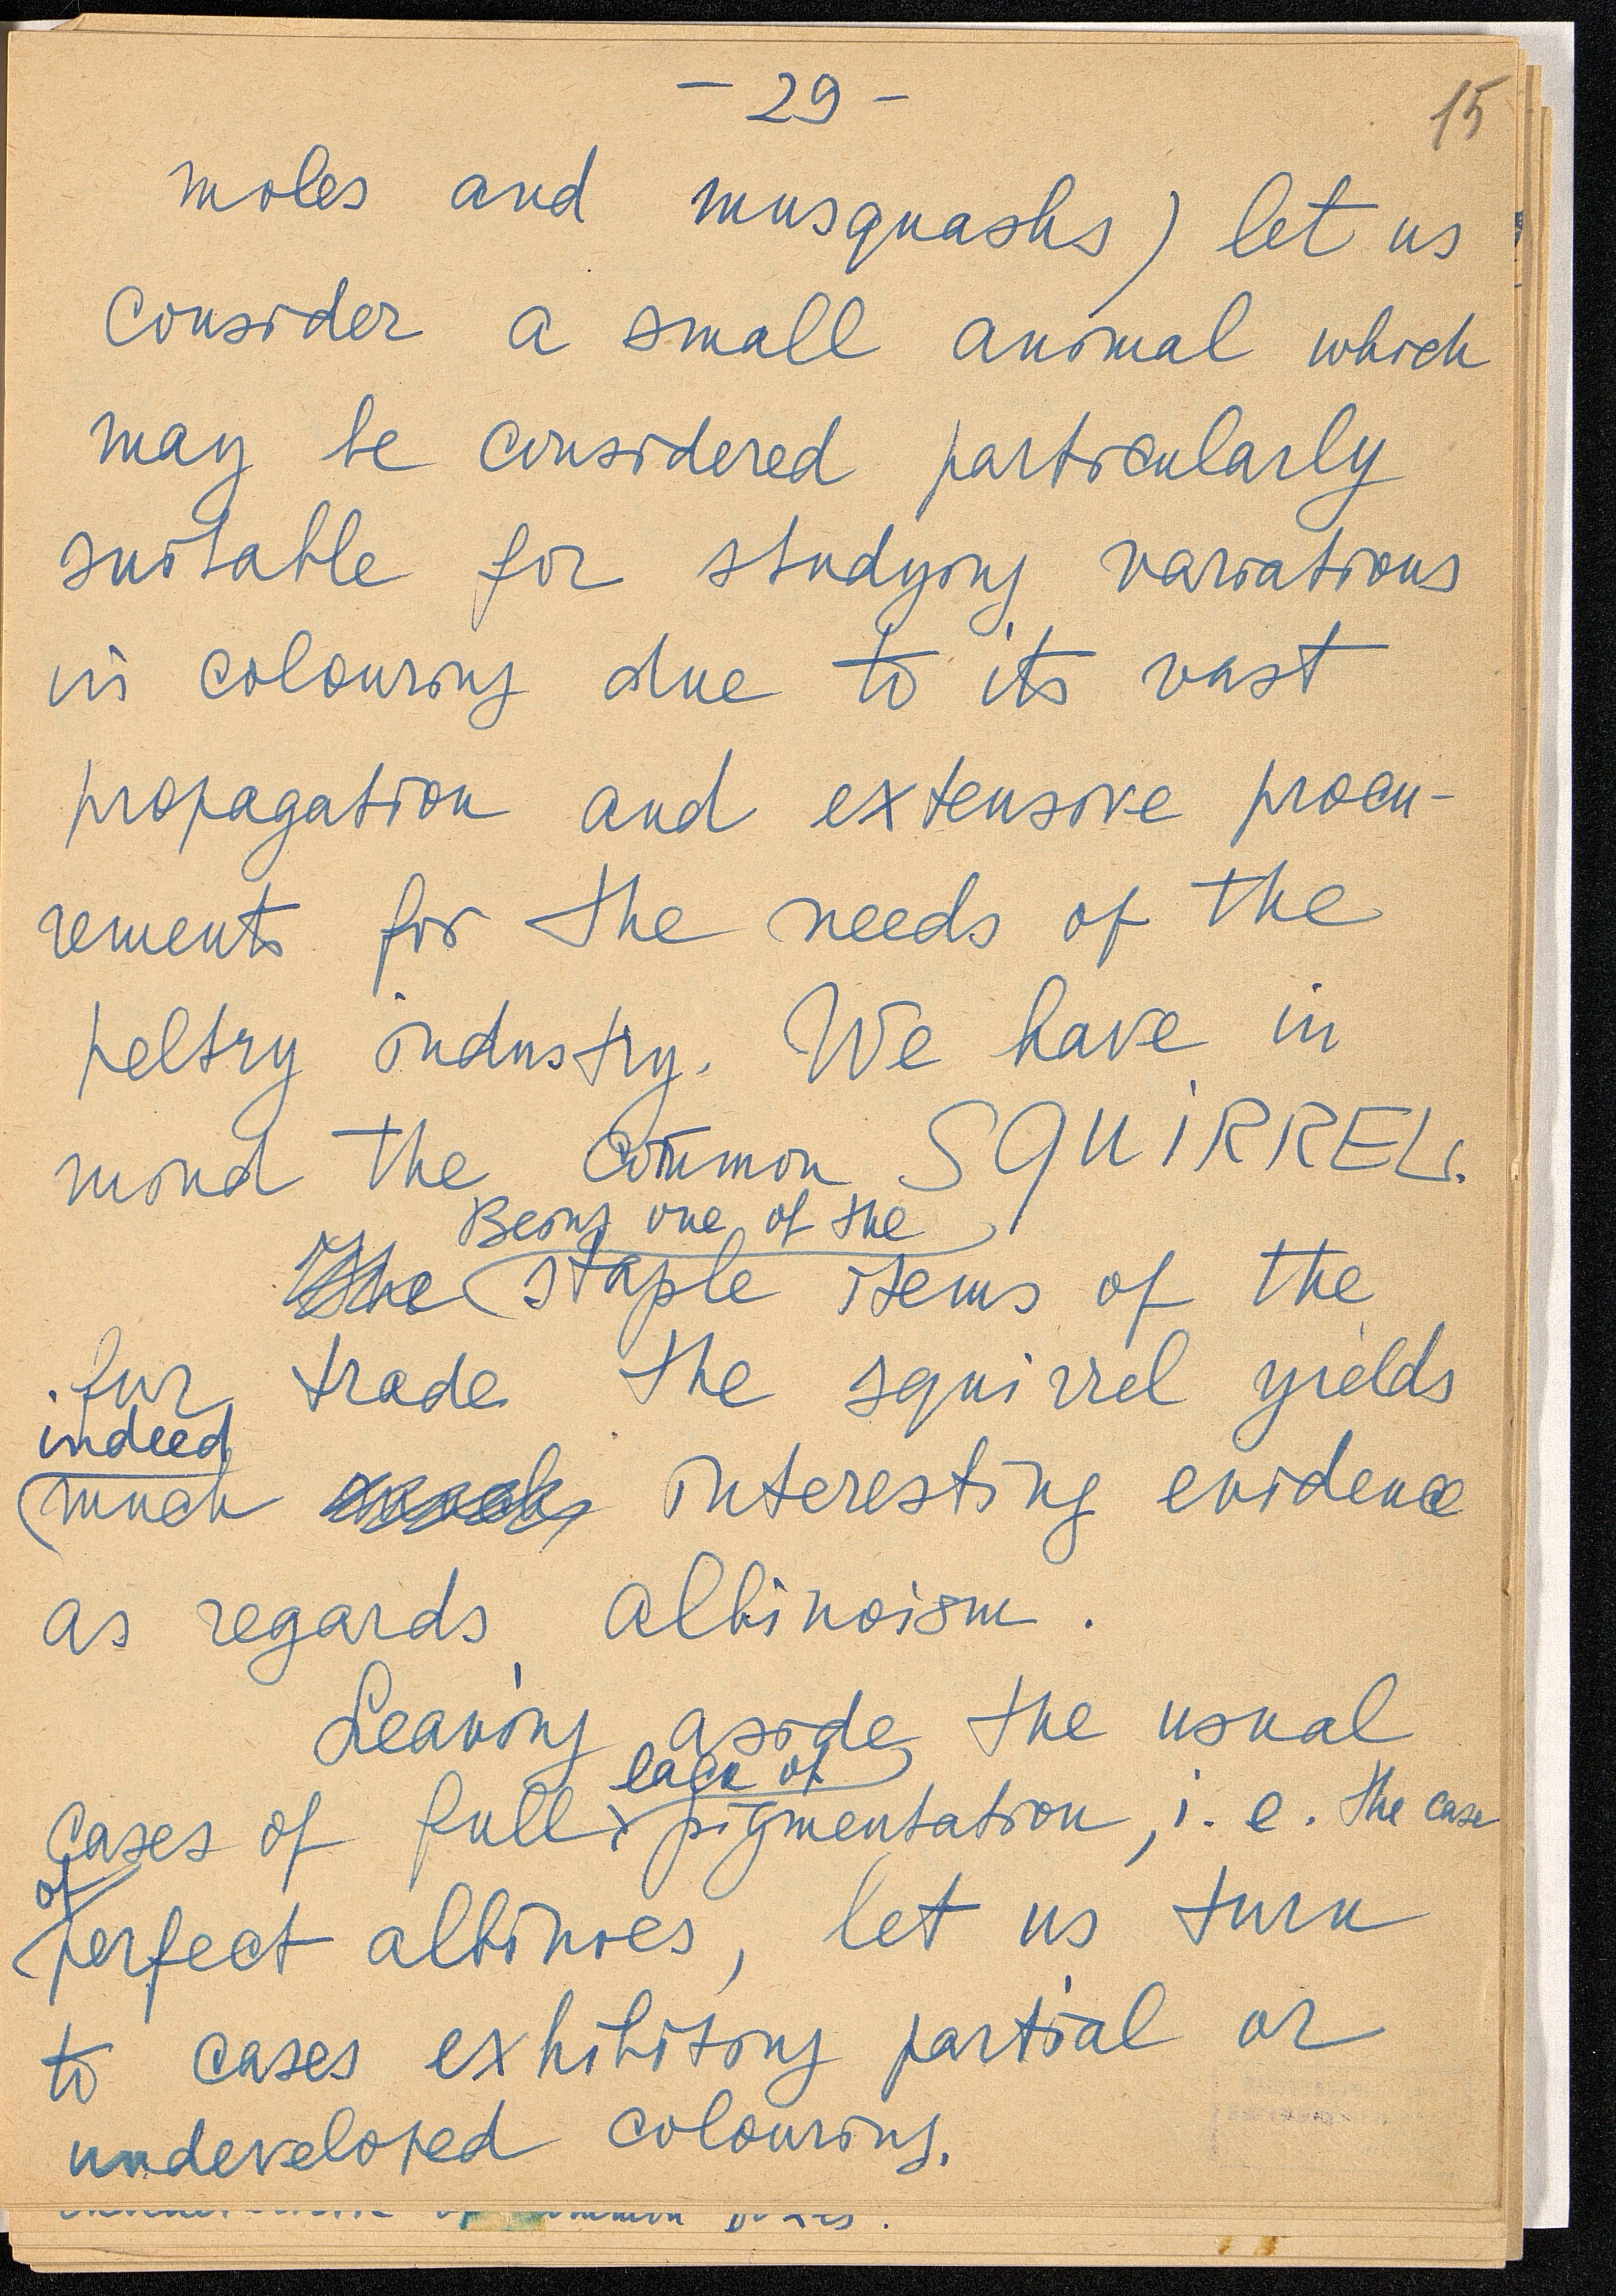 - 29 -
15
moles and musquashs) let us
consider a small animal which
may be considered particularly
suitable for studying variations
in colouring due to its vast
propagation and extensive procu-
rements for the needs of the
peltry industry. We have in
mind the common SQUIRREL.
Being one of the
The staple items of the
fur trade the squirrel yields
indeed
much interesting evidence
as regards albinoism.
Leaving aside the usual
lack of
cases of full pigmentation, i.e. the case
of
perfect albinoes, let us turn
to cases exhibiting partial or
undeveloped colouring.